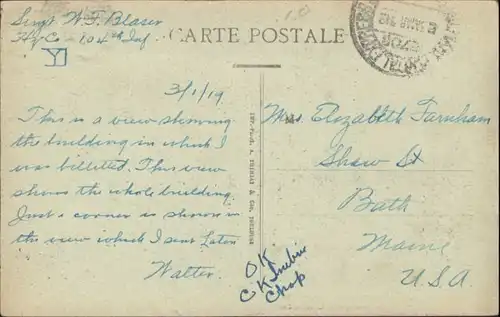 Sergt W. F. Blaser
Hq Co - 104th Inf.
YD
CARTE POSTALE
3/1/19
This is a view showing
the building in which I
was billetted. This view
shows the whole building.
Just a corner is shown in
the view which I sent
Walter.
Mrs. Elizabeth Farnham
Shaw St
Bath
Maine
U.S.A.
OK
Chap